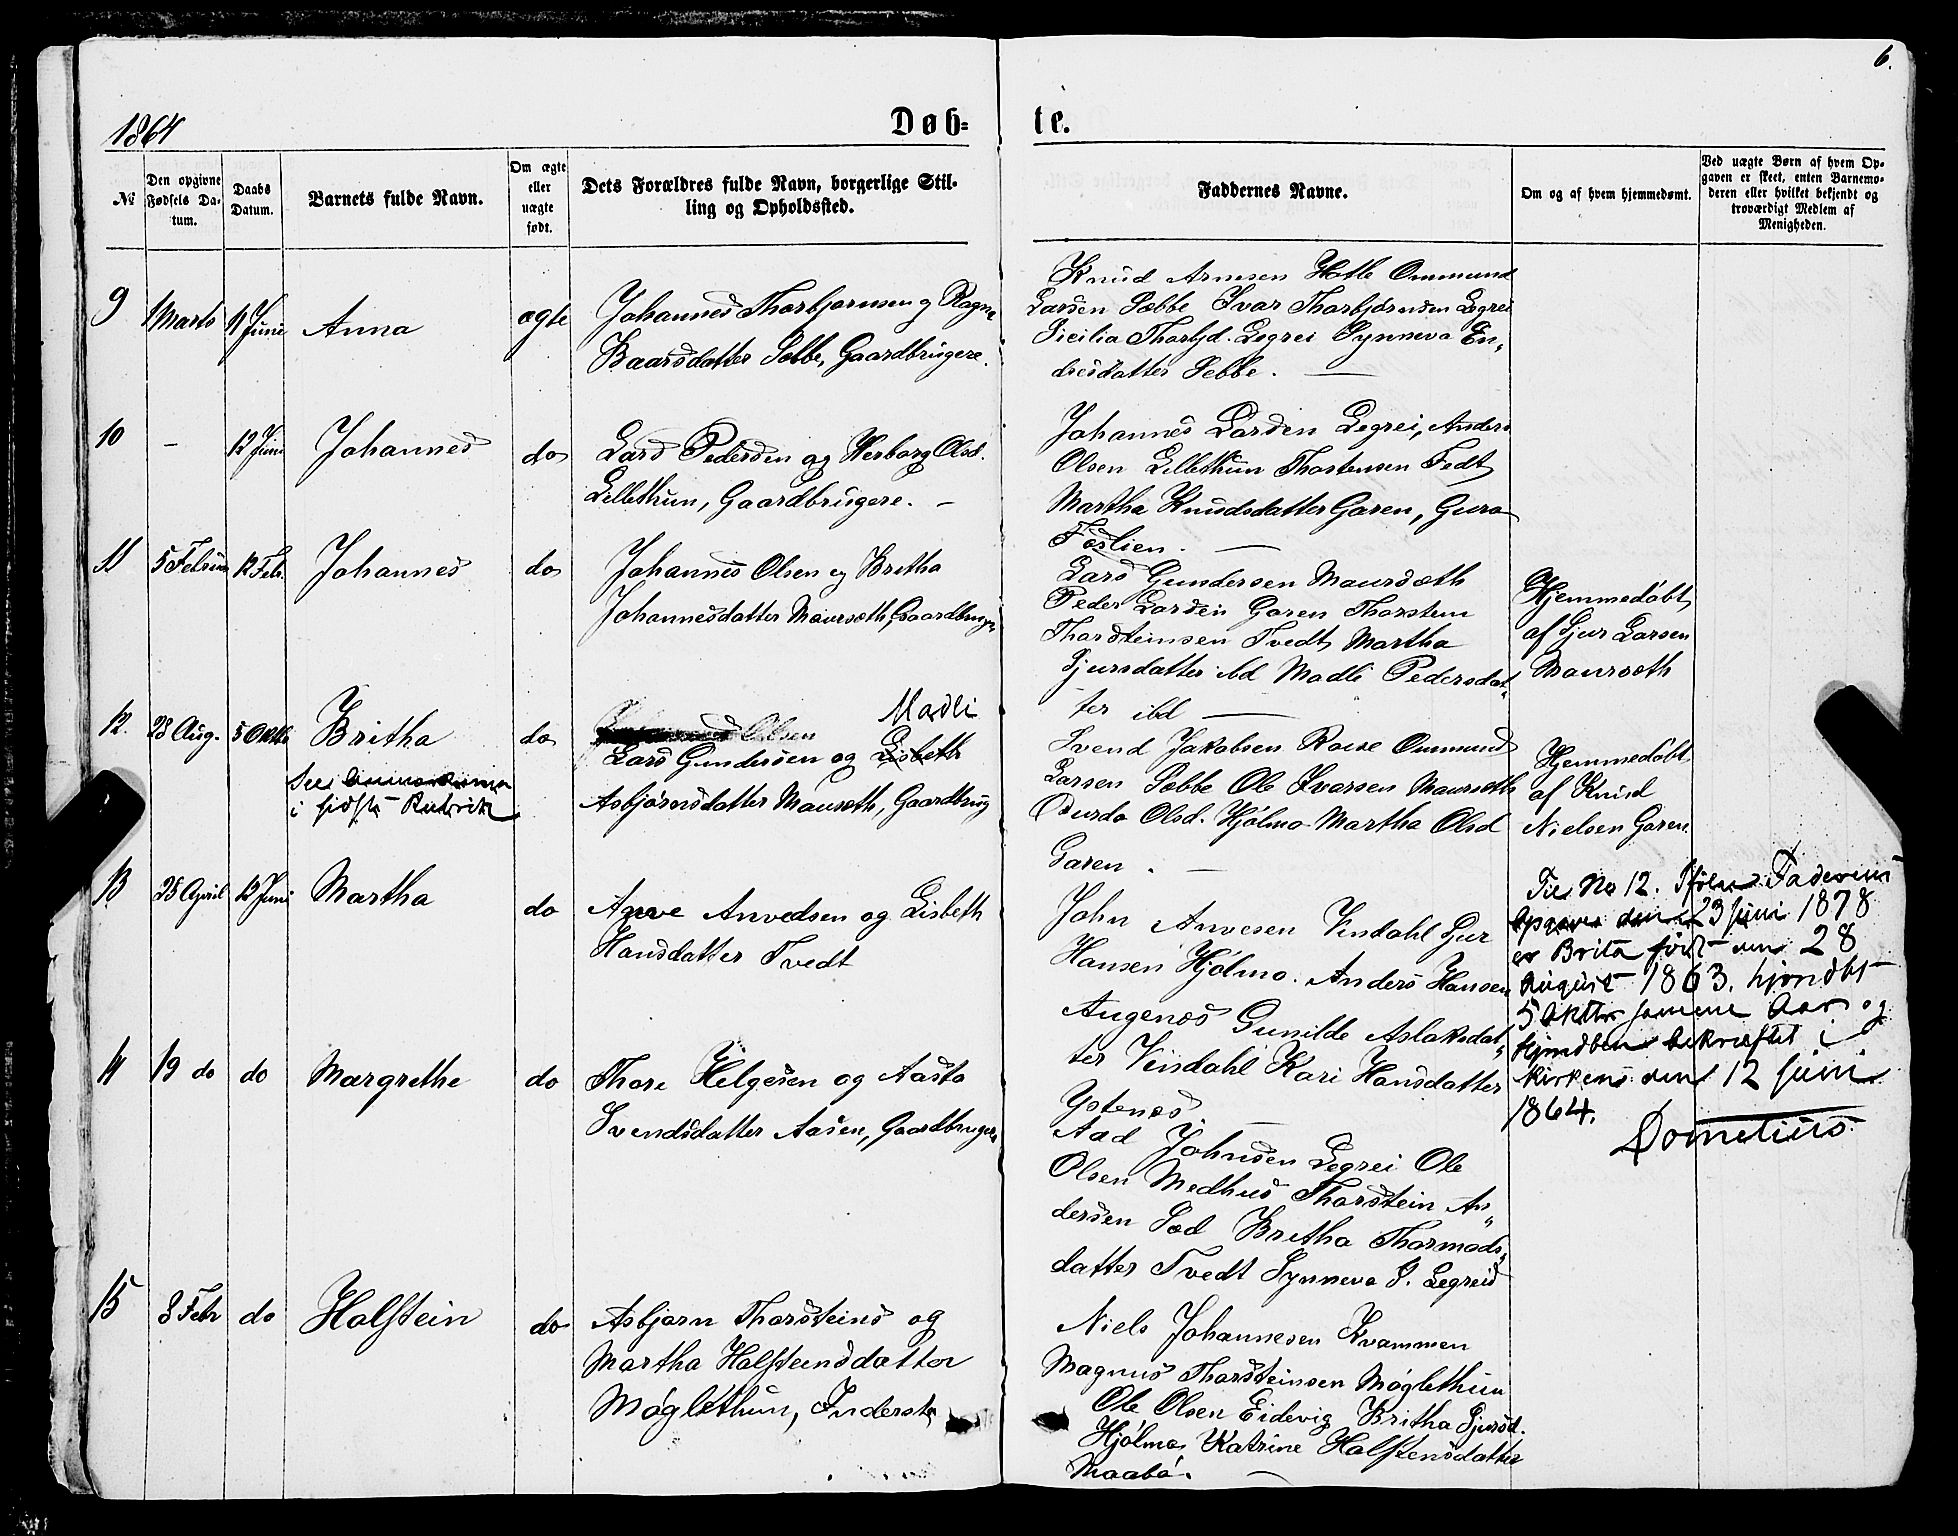 6.
1864
Døb-
te.
№
Den opgivne Fødsels Datum.
Daabs Datum.
Barnets fulde Navn.
Om ægte eller uægte født.
Dets Forældres fulde Navn, borgerlige Stilling og Opholdssted.
Faddernes Navne.
Om og af hvem hjemmedømt.
Ved uægte Børn af hvem Opgaven er skeet, enten Barnemoderen eller hvilket bekjendt og troværdigt Medlem af Menigheden.
9
1 Marts
11 Juni
Anna
ægte
Johannes Thorbjørnsen og Ragna
Baarsdatter Sæbbe, Gaardbrugere.
Knud Arnesen Hotle Ommund
Larsen Sæbbe Ivar Thorbjørnsen Legrei
Sicilia Thorbjd. Legrei Synneva En„
dresdatter Sebbe. —
10
–
12 Juni
Johannes
do
Lars Pedersen og Herborg Olsd.
Lillethun, Gaardbrugere. –
Johannes Larsen Legrei, Anders
Olsen Lillethun Thostensen Tedt
Martha Knudsdatter Garen, Guro
Foslien. —
11
5 Februar
12 Febr.
Johannes
do
Johannes Olsen og Britha
Johannesdatter Maursæth, Gaardbruger
Lars Gundersen Maursæth
Peder Larsen Garen Thorstein
Thorsteinsen Tvedt Martha
Sjursdatter ibd Madli Pedersdat„
ter ibd —
Hjemmedøbt
af Sjur Larsen
Maursæth
12.
28 Aug.
5 Oktb
Britha
See Anmærkning
i sidste Rubrik
do
Olsen Madli
Lars Gundersen og Lisbeth
Asbjørnsdatter Maursæth, Gaardbrug
Svend Jakobsen Røise Ommund
Larsen Sæbbe Ole Ivarsen Maursæth
Durdo Olsd. Hjølmo Martha Olsd
Garen. —
Hjemmedøbt
af Knud
Nielsen Garen
13
25 April
12 Juni
Martha
do
Anve Anvedsen og Lisbeth
Hansdatter Tvedt
John Anvesen Vindahl Sjur
Hansen Hjølmo. Anders Hansen
Augenæs Gunilde Aslaksdat„
ter Vindahl Kari Hansdatter
Ystenæs —
Til No 12. Ifølge Faderens
Opgave den 23 Juni 1878
er Brita født den 28
August 1863. hjmdbt
5 Oktbr samme Aar og
Hjmdben bekræftet i
Kirken den 12 Juni
1864.
Dometius
14
19 do
do
Margrethe
do
Thore Helgesen og Aasta
Svendsdatter Aasen, Gaardbruger
Aad Johnsen Legrei Ole
Olsen Medhus Thorstein An„
dersen Sæd Britha Thormods„
datter Tvedt Synneva S. Legreid
15
8 Febr
do
Halstein
do
Asbjørn Thorsteins og
Martha Halsteinsdatter
Møglethun, Inderste
Niels Johannesen Kvammen
Magnus Thorsteinsen Møglethun
Ole Olsen Eidevig Britha Sjursd.
Hjølmo, Katrine Halstensdatter
Maabø. —